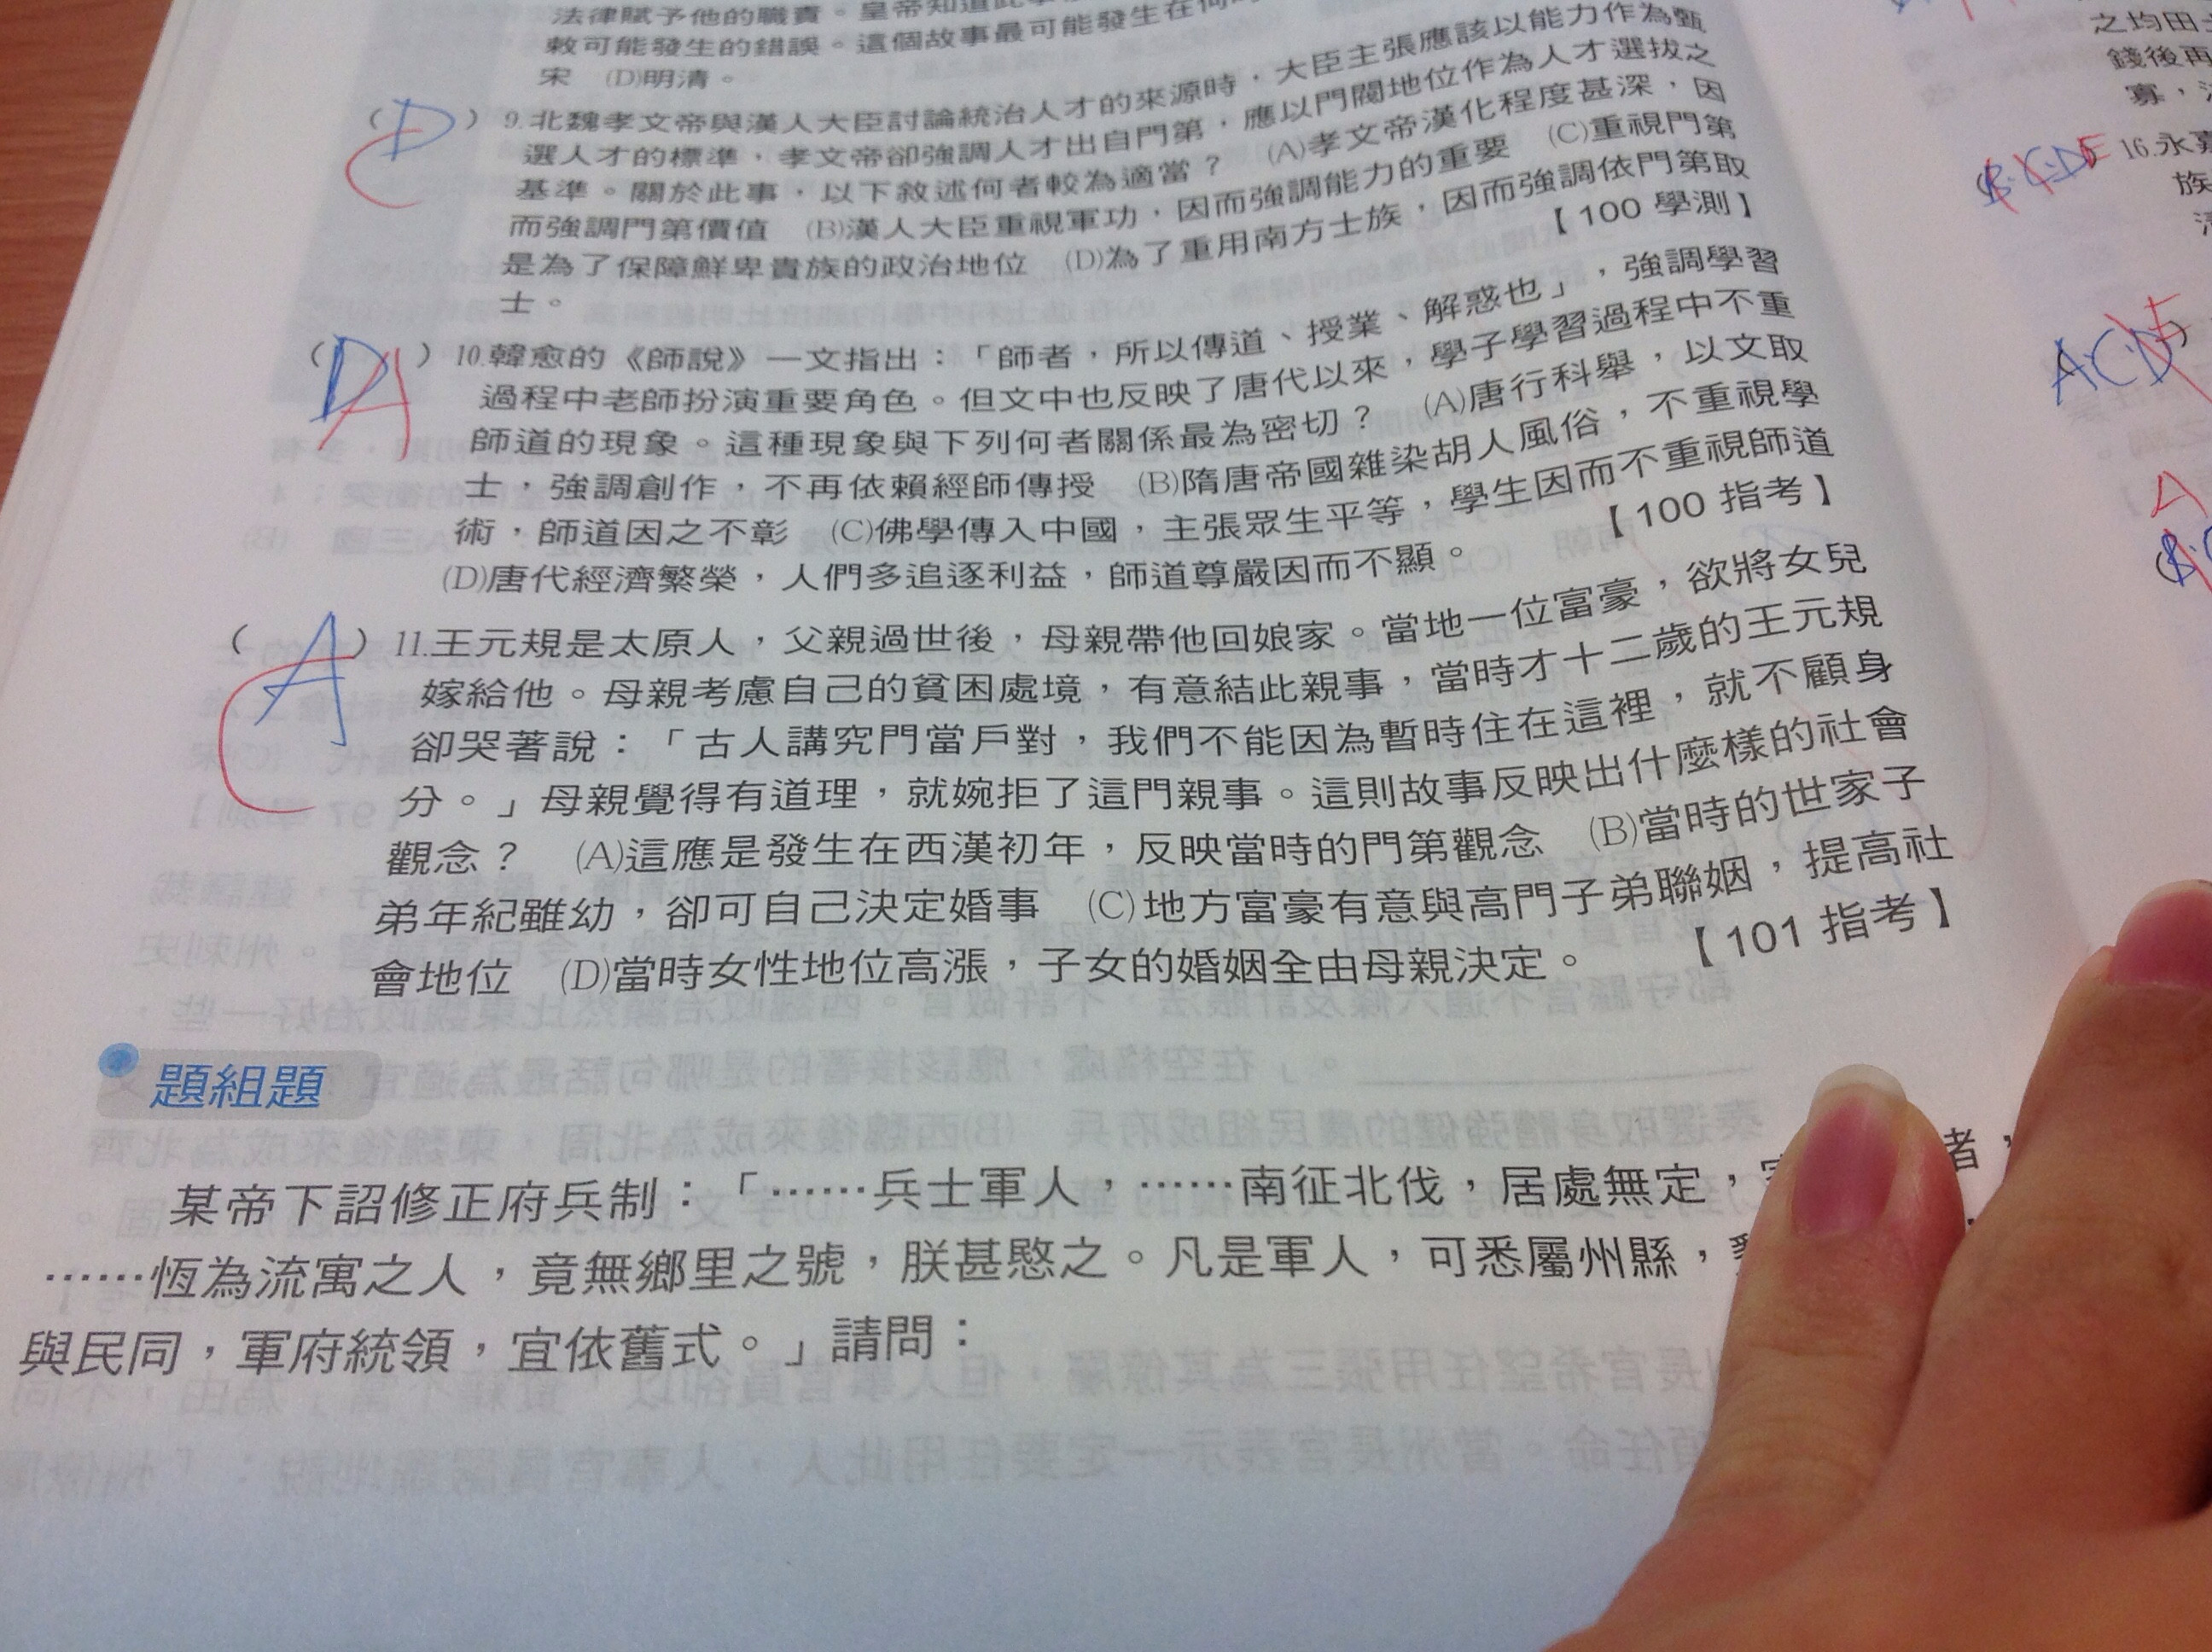 法律賦予他的職責。皇帝知道此事
敕可能發生的錯誤。這個故事最可能發生在何
宋 (D)明清。
(D) C 9.北魏孝文帝與漢人大臣討論統治人才的來源時，大臣主張應該以能力作為甄
選人才的標準，孝文帝卻強調人才出自門第，應以門閥地位作為人才選拔之
基準。關於此事，以下敘述何者較為適當？ (A)孝文帝漢化程度甚深，因
而強調門第價值 (B)漢人大臣重視軍功，因而強調能力的重要 (C)重視門第
是為了保障鮮卑貴族的政治地位 (D)為了重用南方士族，因而強調依門第取
士。 【100 學測】
(D) A 10.韓愈的《師說》一文指出：「師者，所以傳道、授業、解惑也」，強調學習
過程中老師扮演重要角色。但文中也反映了唐代以來，學子學習過程中不重
師道的現象。這種現象與下列何者關係最為密切？ (A)唐行科舉，以文取
士，強調創作，不再依賴經師傳授 (B)隋唐帝國雜染胡人風俗，不重視學
術，師道因之不彰 (C)佛學傳入中國，主張眾生平等，學生因而不重視師道
(D)唐代經濟繁榮，人們多追逐利益，師道尊嚴因而不顯。 【100 指考】
(A) C 11.王元規是太原人，父親過世後，母親帶他回娘家。當地一位富豪，欲將女兒
嫁給他。母親考慮自己的貧困處境，有意結此親事，當時才十二歲的王元規
卻哭著說：「古人講究門當戶對，我們不能因為暫時住在這裡，就不顧身
分。」母親覺得有道理，就婉拒了這門親事。這則故事反映出什麼樣的社會
觀念？ (A)這應是發生在西漢初年，反映當時的門第觀念 (B)當時的世家子
弟年紀雖幼，卻可自己決定婚事 (C)地方富豪有意與高門子弟聯姻，提高社
會地位 (D)當時女性地位高漲，子女的婚姻全由母親決定。 【101 指考】
題組題
某帝下詔修正府兵制：「……兵士軍人，……南征北伐，居處無定， 者，
……恆為流寓之人，竟無鄉里之號，朕甚愍之。凡是軍人，可悉屬州縣，
與民同，軍府統領，宜依舊式。」請問：
之均田
錢後再
寡，
16.永嘉
族
A